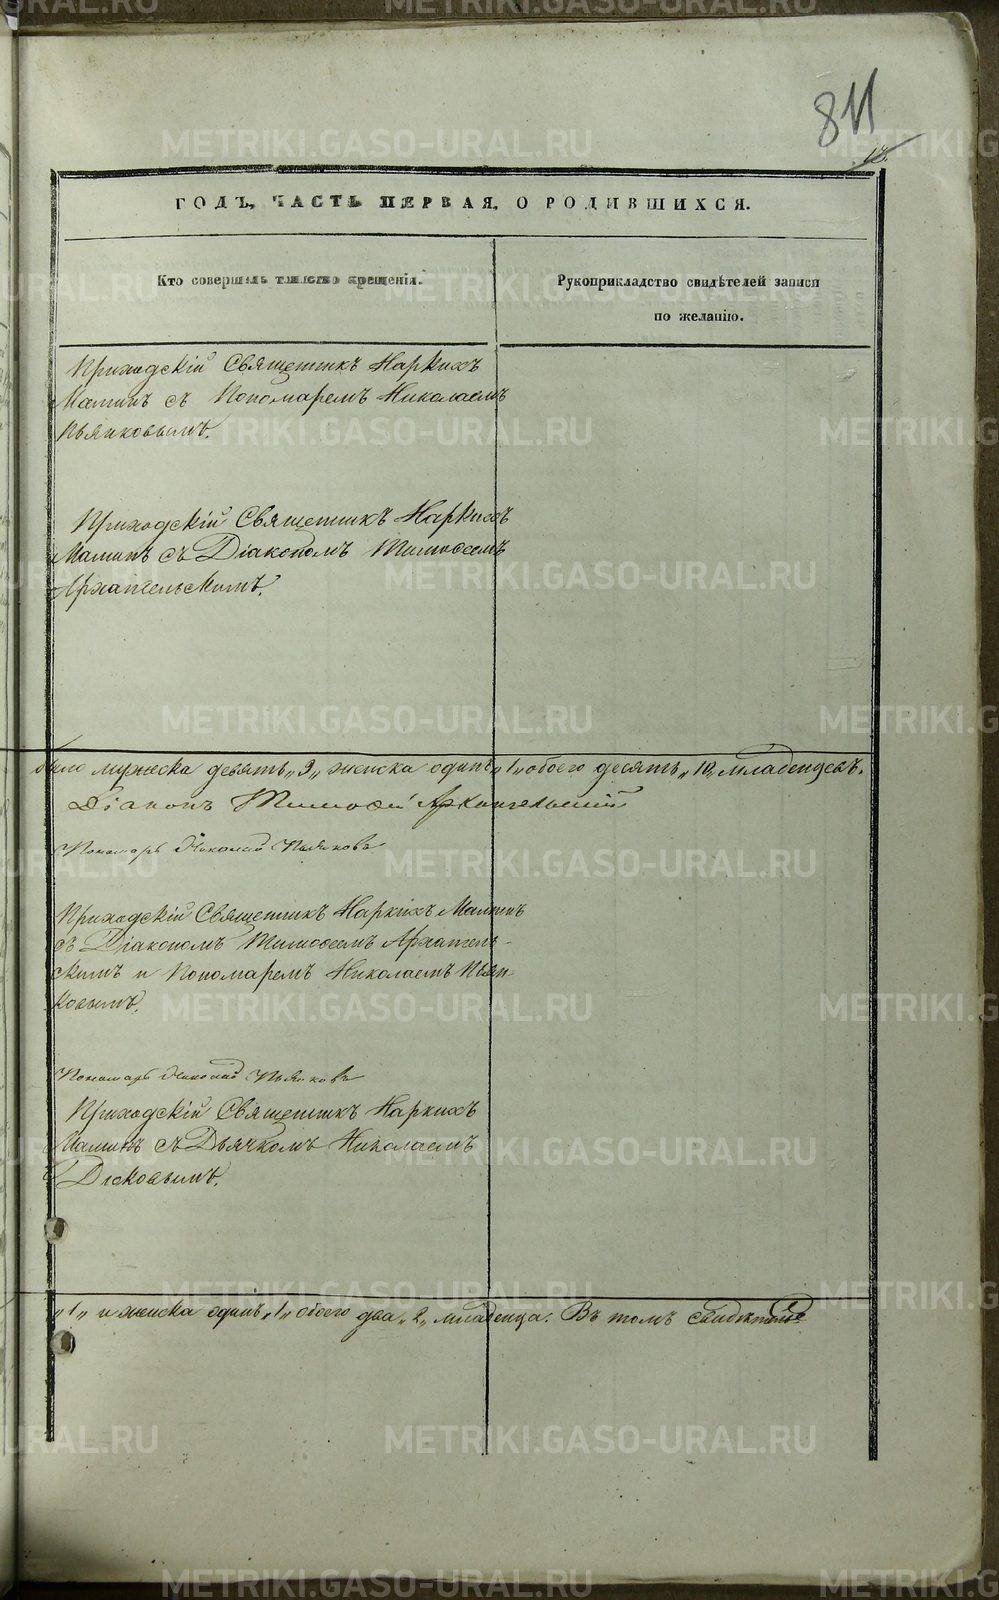 811
13.
ГОДЪ, ЧАСТЬ ПЕРВАЯ, О РОДИВШИХСЯ.
Кто совершалъ таинство крещенія.
Рукоприкладство свидѣтелей записи
по желанію.
Приходскій Священникъ Наркисъ
Маминъ съ Пономаремъ Николаемъ
Пьянковымъ.
Приходскій Священникъ Наркисъ
Маминъ съ Діакономъ Тимоѳеемъ
Архангельскимъ.
было мужеска девять „9„ женска одинъ „1„ обоего десять „10„ младенцевъ.
Діаконъ Тимоѳей Архангельскій
Пономарь Николай Пьянковъ
Приходскій Священникъ Наркисъ Маминъ
съ Діакономъ Тимоѳеемъ Архангель-
скимъ и Пономаремъ Николаемъ Пьян-
ковымъ.
Пономарь Николай Пьянковъ
Приходскій Священникъ Наркисъ
Маминъ съ Дьячкомъ Николаемъ
Дюковымъ.
„1„ и женска одинъ „1„ обоего два „2„ младенца. Въ томъ свидѣтель-
METRIKI.GASO-URAL.RU